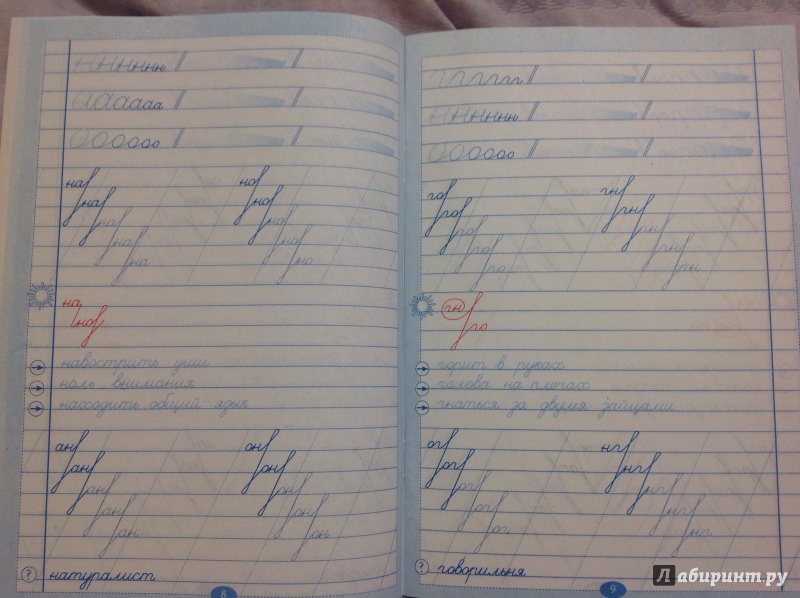 ннннннн
ааааааа
ооооооо
на но
на но
на но
на но
на но
на
но
навострить уши
ноль внимания
находить общий язык
ан он
ан он
ан он
ан он
ан он
? натуралист
8
гггггг
ннннннн
оооооо
го гн
го гн
го гн
го гн
го гн
гн
го
горит в руках
голова на плечах
гнаться за двумя зайцами
ог нг
ог нг
ог нг
ог нг
ог нг
? говорильня
9
Лабиринт.ру